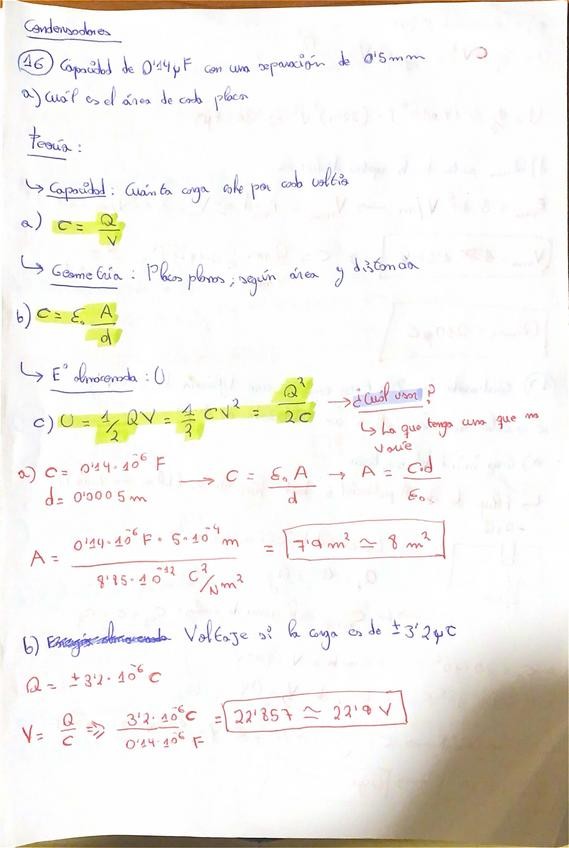 Condensadores
16 Capacidad de 0'14 μF con una separación de 0'5mm
a) Cuál es el área de cada placa
Teoría:
↳ Capacidad: Cuánta carga cabe por cada voltio
a) C = Q/V
↳ Geometría: Placas planas; según área y distancia
b) C = ε₀ A/d
↳ Eª almacenada: U
c) U = 1/2 QV = 1/2 CV² = Q²/2C → ¿Cuál usar?
↳ La que tenga una que no varíe
a) C = 0'14·10⁻⁶ F → C = ε₀ A/d → A = C·d/ε₀
d = 0'0005 m
A = 0'14·10⁻⁶ F · 5·10⁻⁴ m / 8'85·10⁻¹² C²/Nm² = 7'9 m² ≃ 8 m²
b) Voltaje si la carga es de ±3'2 μC
Q = ±3'2·10⁻⁶ C
V = Q/C ⇒ 3'2·10⁻⁶ C / 0'14·10⁻⁶ F = 22'857 ≃ 22'9 V